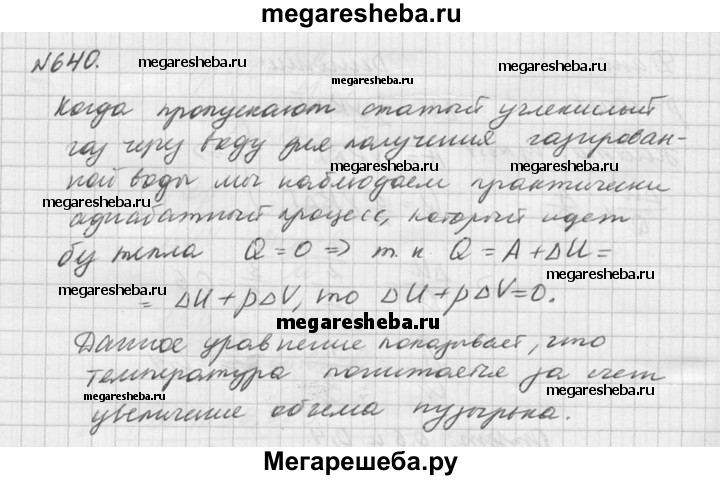 megaresheba.ru
№640.
megaresheba.ru megaresheba.ru
megaresheba.ru
Когда пропускают сжатый углекислый
газ через воду для получения газирован-
megaresheba.ru megaresheba.ru
ной воды мы наблюдаем практически
megaresheba.ru
адиабатный процесс, который идет
без тепла Q = 0 => т. к Q = A + ΔU =
megaresheba.ru megaresheba.ru
= ΔU + pΔV, то ΔU + pΔV = 0.
megaresheba.ru
Данное уравнение показывает, что
температура понижается за счет
megaresheba.ru megaresheba.ru
увеличение объема пузырька.
Мегарешеба.ру